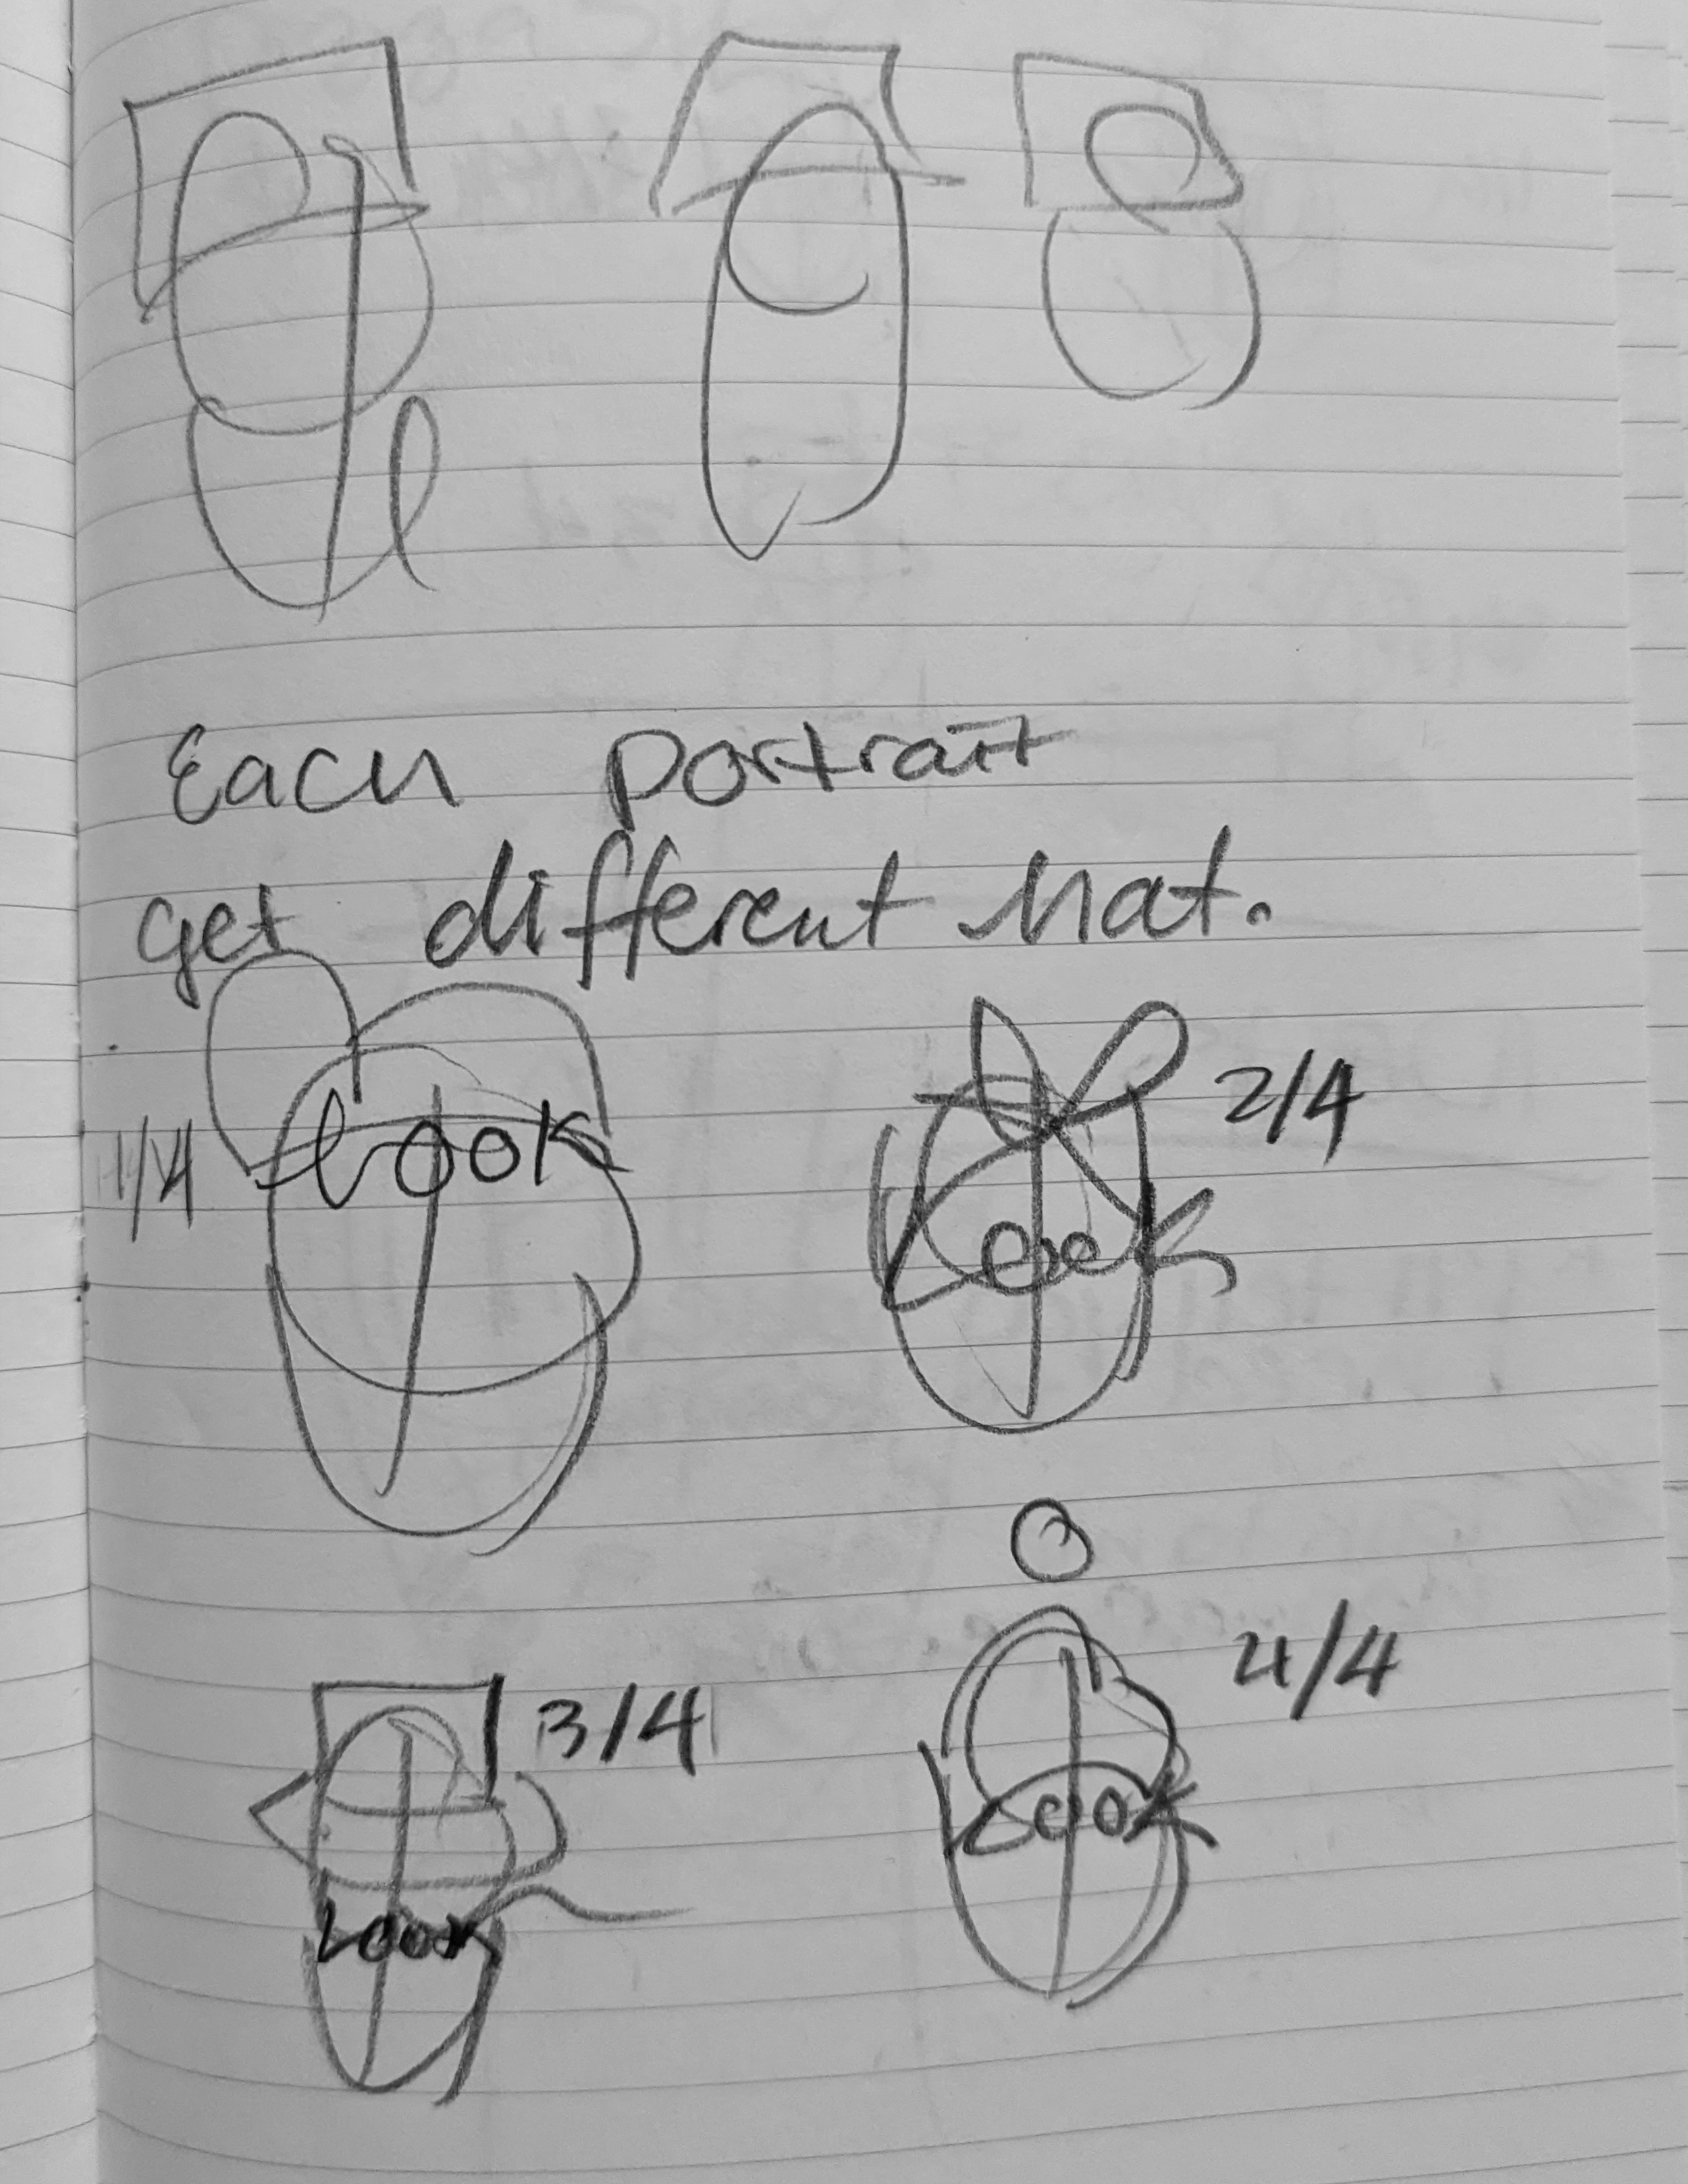 Each portrait
get different hat.
look
1/4
2/4
Look
3/4
Look
4/4
Look